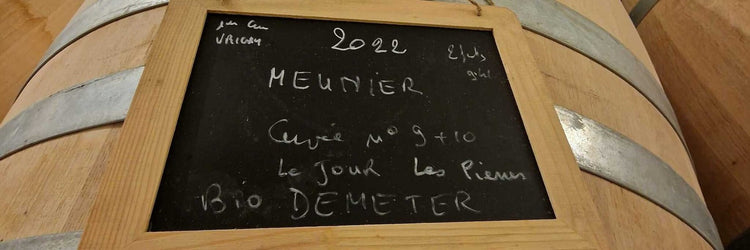 1er Cru
VRIGNY
2022
2 fûts
MEUNIER
Cuvée n° 9+10
Le JOUR Les Pierres
Bio DEMETER